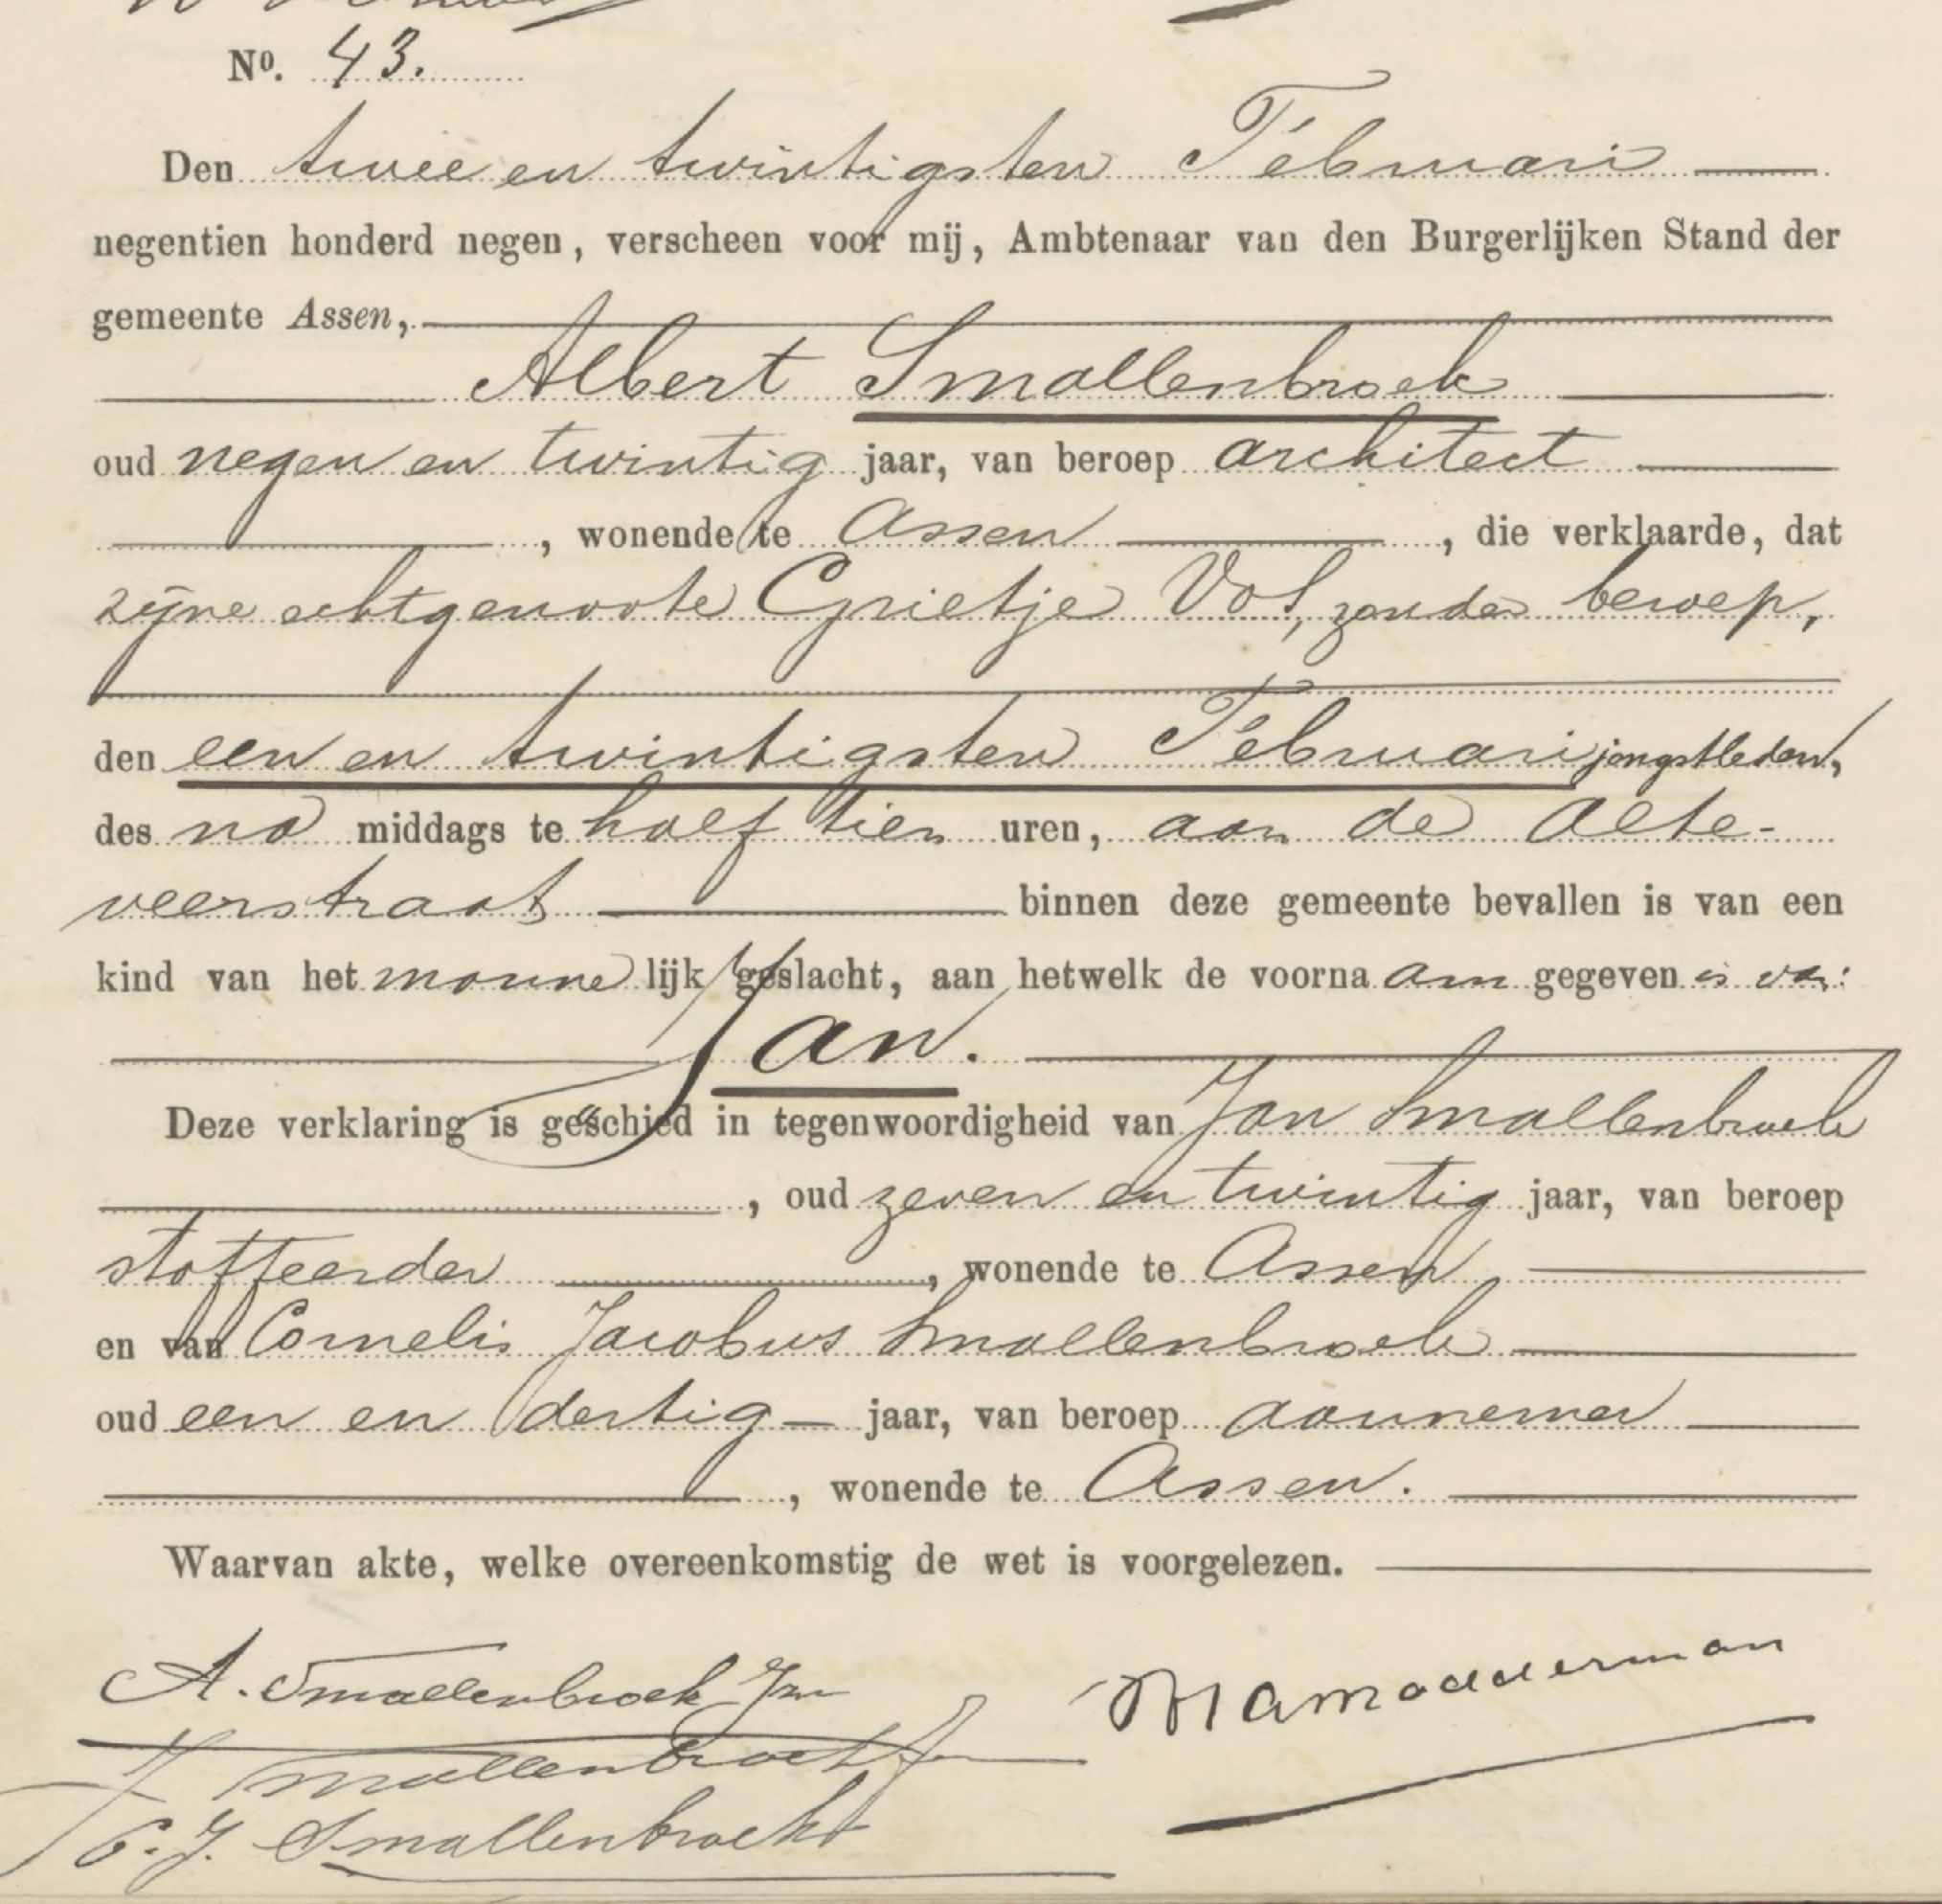 No. 43.
Den twee en twintigsten Februari
negentien honderd negen, verscheen voor mij, Ambtenaar van den Burgerlijken Stand der
gemeente Assen,
Albert Smallenbroek
oud negen en twintig jaar, van beroep architect
, wonende te Assen , die verklaarde, dat
zijne echtgenoote Grietje Vos, zonder beroep,
den een en twintigsten Februari jongstleden,
des na middags te half tien uren, aan de Alte-
veerstraat binnen deze gemeente bevallen is van een
kind van het manne lijk geslacht, aan hetwelk de voorna am gegeven is van:
Jan.
Deze verklaring is geschied in tegenwoordigheid van Jan Smallenbroek
, oud zeven en twintig jaar, van beroep
stoffeerder , wonende te Assen
en van Cornelis Jacobus Smallenbroek
oud een en dertig jaar, van beroep aannemer
, wonende te Assen.
Waarvan akte, welke overeenkomstig de wet is voorgelezen.
A. Smallenbroek Jzn
J Smallenbroek Jzn
C. J. Smallenbroek